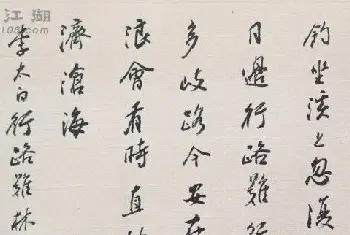 釣坐溪上忽復
日邊行路難
多岐路今安在
浪會有時直
濟滄海
李太白行路難林
江湖